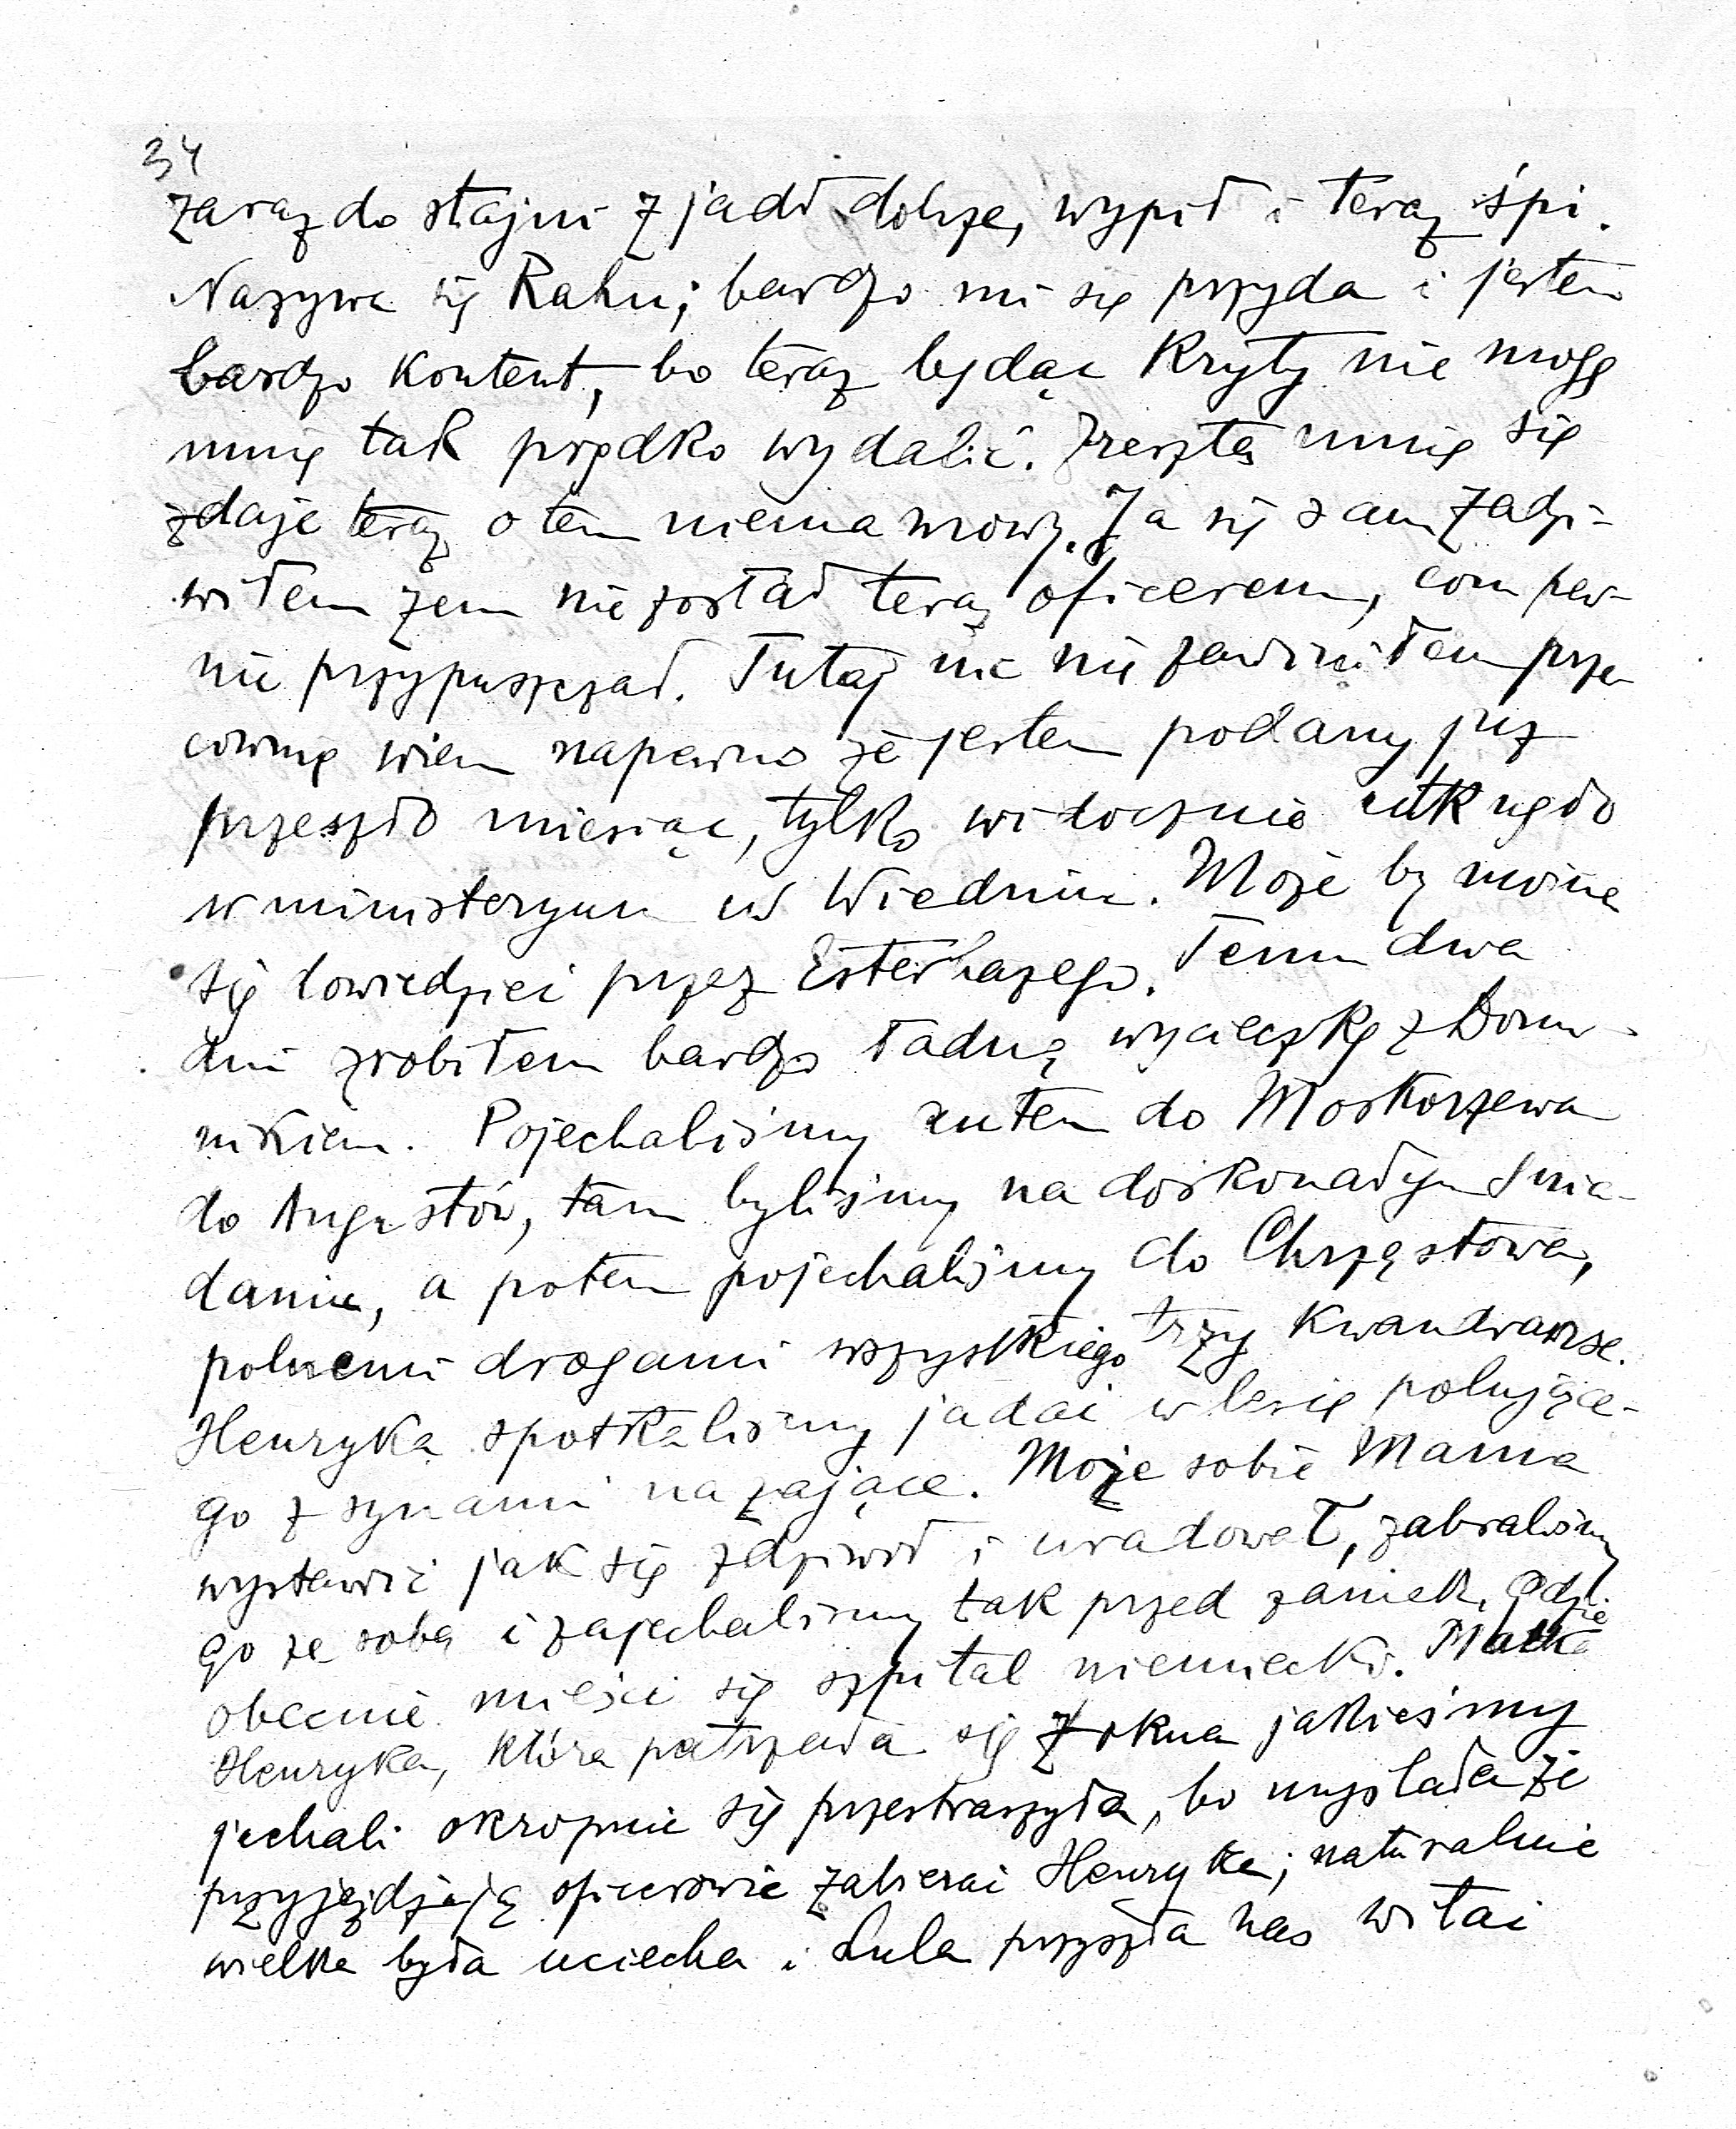 34
zaraz do stajni zjadł dobrze, wypił i teraz śpi.
Nazywa się Rahu; bardzo mi się przyda i jestem
bardzo kontent, bo teraz będąc kryty nie mogę
mnię tak prędko wydalić. Zresztą mnię się
zdaje teraz o tem niema mowy. Ja się sam zadzi-
wiłem żem nie został teraz oficerem, com pew-
nie przypuszczał. Tutaj nic nie zawiniłem prze
cownię wiem napewno że jestem podany już
przeszło miesiąc, tylko widocznie utknęło
w ministeryum w Wiedniu. Może by można
się dowiedzieć przez Esterhazego. Temu dwa
dni zrobiłem bardzo ładną wycieczkę z Domi-
nikiem. Pojechaliśmy autem do Moskorzewa
do Augustów, tam byliśmy na doskonałym śnia-
daniu, a potem pojechaliśmy do Chrząstowa,
polnemi drogami wszystkiego trzy kwandranse.
Henryka spotkaliśmy jadąc w lesie polujące-
go z synami na zające. Może sobie Mama
wystawić jak się zdziwił i uradował, zabraliśmy
go ze sobą i zajechaliśmy tak przed zamek, gdzie
obecnie mieści się szpital niemiecki. Matka
Henryka, która patrzała się z okna jakieśmy
jechali okropnie się przestraszyła, bo myślała że
przyjeżdżają oficerowie zabierać Henryka; naturalnie
wielka była uciecha i Lula przyszła nas witać